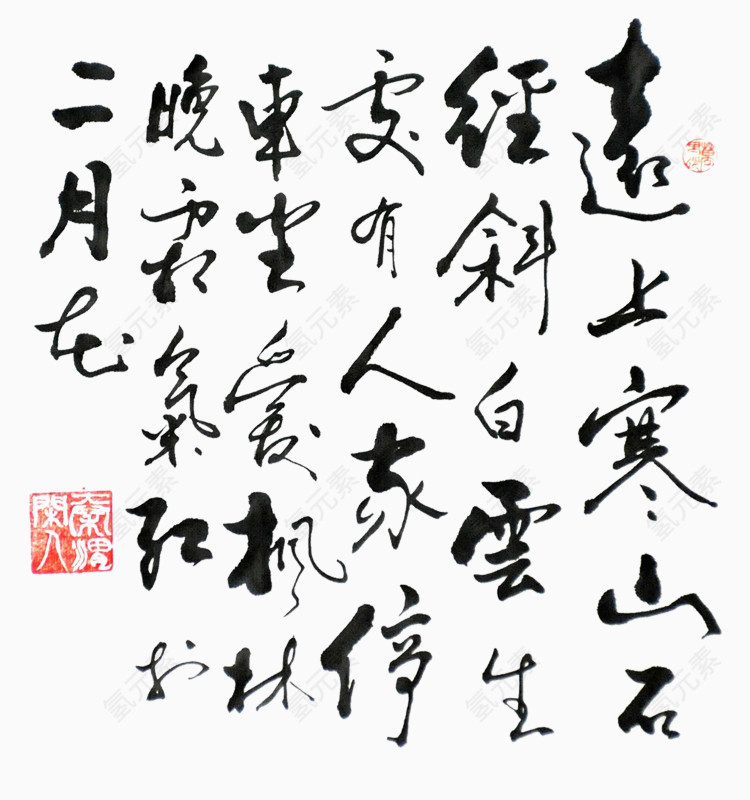 遠上寒山石
經斜白雲生
處有人家停
車坐愛楓林
晚霜氣紅於
二月花
氢元素